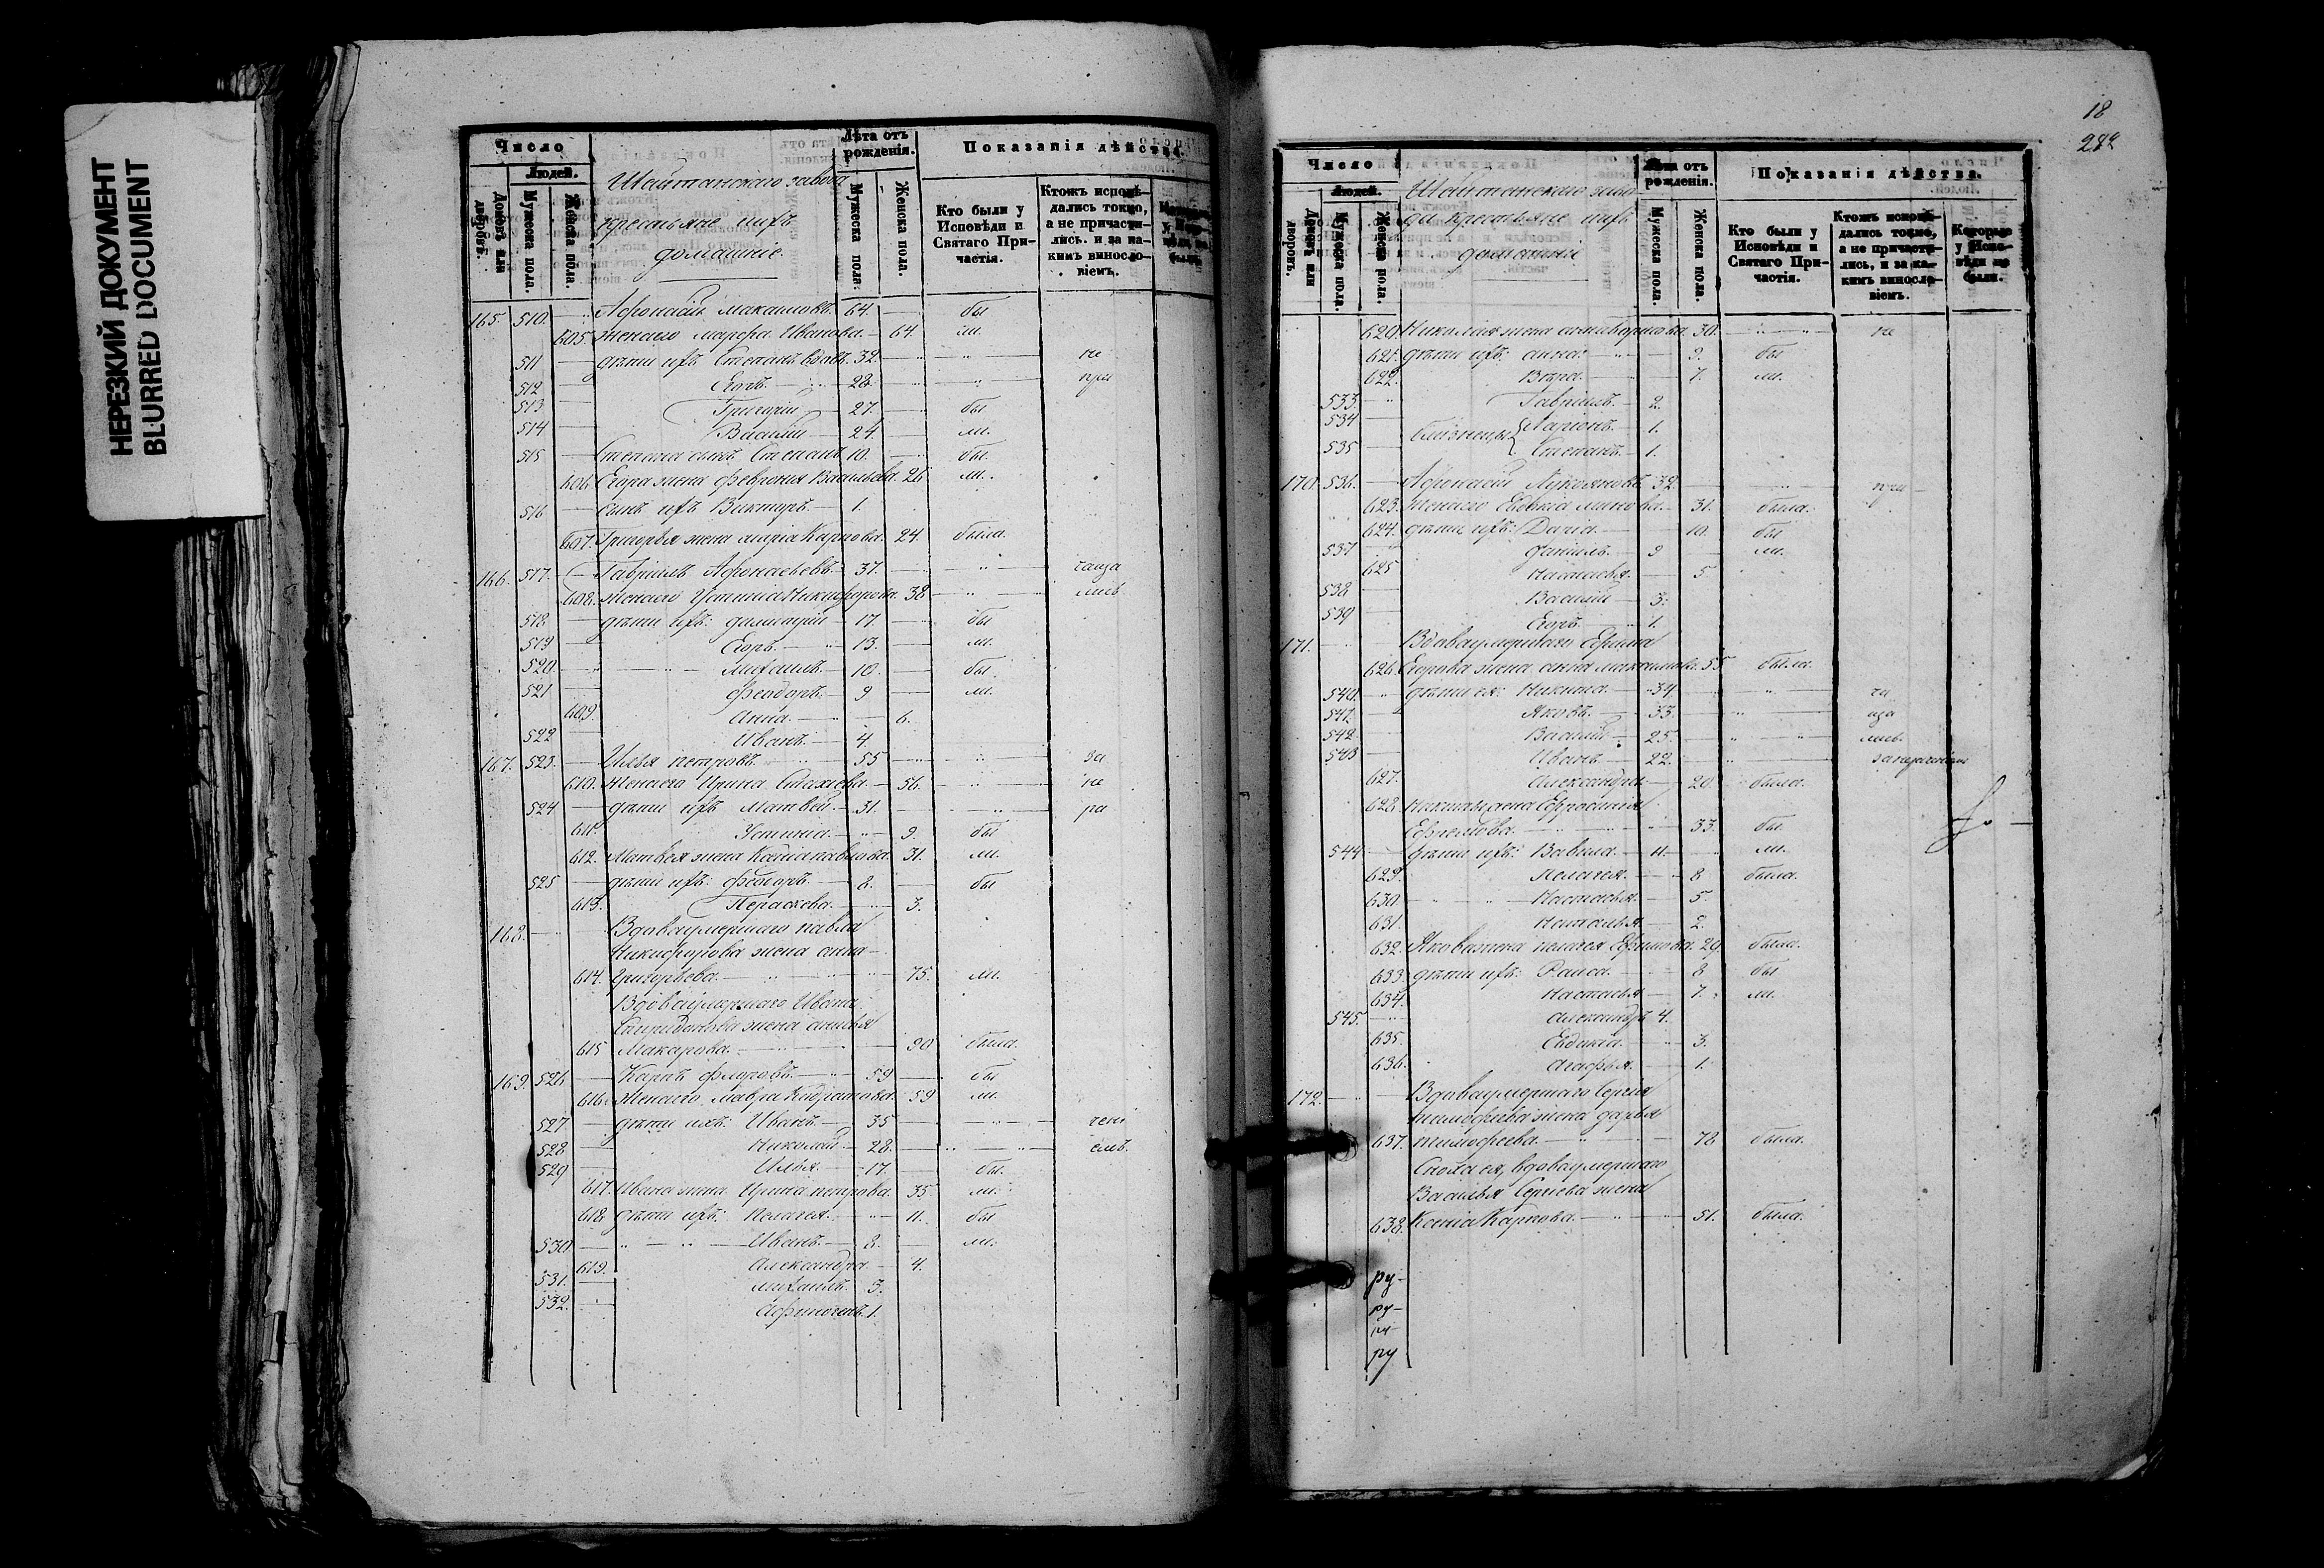 НЕРЕЗКИЙ ДОКУМЕНТ
BLURRED DOCUMENT
Число
Людей.
Домовъ или дворовъ.
Мужеска пола.
Женска пола.
Шайтанскаго завода
крестьяне ихъ
домашніе
Лѣта отъ рожденія.
Мужеска пола.
Женска пола.
Показанія дѣйства.
Кто были у Исповѣди и Святаго Причастія.
Ктожъ исповѣдались токмо, а не причастились. и за какимъ винословіемъ.
165. 510. Афонасій Максимовъ 64. бы
605. Жена его Марфа Иванова. 64. ли.
511 дѣти ихъ Степанъ вдовъ. 32. не
512 Егоръ 28. при
513 Григорій 27. бы
514 Василій 24. ли.
515 Степана сынъ Степанъ 10. бы
606. Егора жена Феврония Васильева. 26 ли.
516 сынъ ихъ Викторъ 1.
607. Григорья жена Марія Карпова. 24. была.
166. 517. Гавріилъ Афонасьевъ 37. чаща
608. жена его Устинія Никифорова. 38 лись
518 дѣти ихъ: Димитрій 17. бы
519 Егоръ. 13. ли.
520 Михаилъ. 10. бы.
521 Феодоръ. 9 ли.
609. Анна. 6.
522 Иванъ. 4.
167. 523. Илья Петровъ. 55 за
610. Жена его Ирина 56. не
524 дѣти ихъ Матвей 31. ра
611. Устинія. 9. бы
612. Матвея жена Ксенія Павлова. 31. ли.
525 дѣти ихъ: Феодоръ. 8. бы
613. Параскева. 3.
168. Вдова умершаго Павла
Никифорова жена Анна
614. Григорьева. 75. ли.
Вдова умершаго Ивана
Спиридонова жена
615 Макарова. 90 была.
169. 526 Карпъ Флоровъ. 59 бы
616. Жена его Мавра 59 ли.
527 дѣти ихъ: Иванъ. 35 чені
528 Николай 28. емъ.
529 Илья. 17. бы.
617. Ивана жена Ирина Петрова. 35 ли.
618 дѣти ихъ: Пелагея. 11. бы
530 Иванъ. 8. ли.
619. Александра 4.
531. Михаилъ. 3.
532. Афиногенъ. 1.
18
282
Число
Людей.
Домовъ или дворовъ.
Мужеска пола.
Женска пола.
Шайтанскаго заво
да крестьяне ихъ
домашніе
Лѣта отъ рожденія.
Мужеска пола.
Женска пола.
Показанія дѣйства.
Кто были у Исповѣди и Святаго Причастія.
Ктожъ исповѣдались токмо, а не причастились, и за какимъ винословіемъ.
Которые у Исповѣди не были.
620. Николая жена 30. не
621. дѣти ихъ: Анна. 9. бы
622. Вѣра. 7. ли.
533. Гавріилъ. 2.
534 близнецы Ларіонъ. 1.
535 Степанъ. 1.
170. 536. Афонасій Лукояновъ 32. при
623. Жена его Евдокія 31. была.
624. дѣти ихъ: Дарія 10. бы
537 Даніилъ. 9 ли.
625 Настасья. 5
538 Василій 3.
539 Егоръ. 1.
171. Вдова умершаго Ефима
626. Егорова жена Анна Максимова. 55 была.
540. дѣти ея: Никита. 34 ча
541. Яковъ. 33. ща
542. Василій 25. лись.
543 Иванъ 22.
627. Александра 20. была.
628. Никиты жена Ефросинія
Ефремова. 33. бы
544 дѣти ихъ: Вавила. 11. ли.
629. Пелагея. 8 была.
630. Настасья. 5.
631. Наталья. 2.
632. Якова жена Пелагея Ефимова. 29. была.
633. дѣти ихъ: Раиса. 8 бы
634. Настасья 7. ли.
545. Александръ 4.
635. Евдокія. 3.
636. Агафья. 1.
172. Вдова умершаго Сергія
Тимофеева жена Дарья
637. Тимофеева. 78 была.
Сноха ея, вдова умершаго
Василья Сергіева жена
638. Ксенія Карпова. 51. была.
ру-
ру-
ру